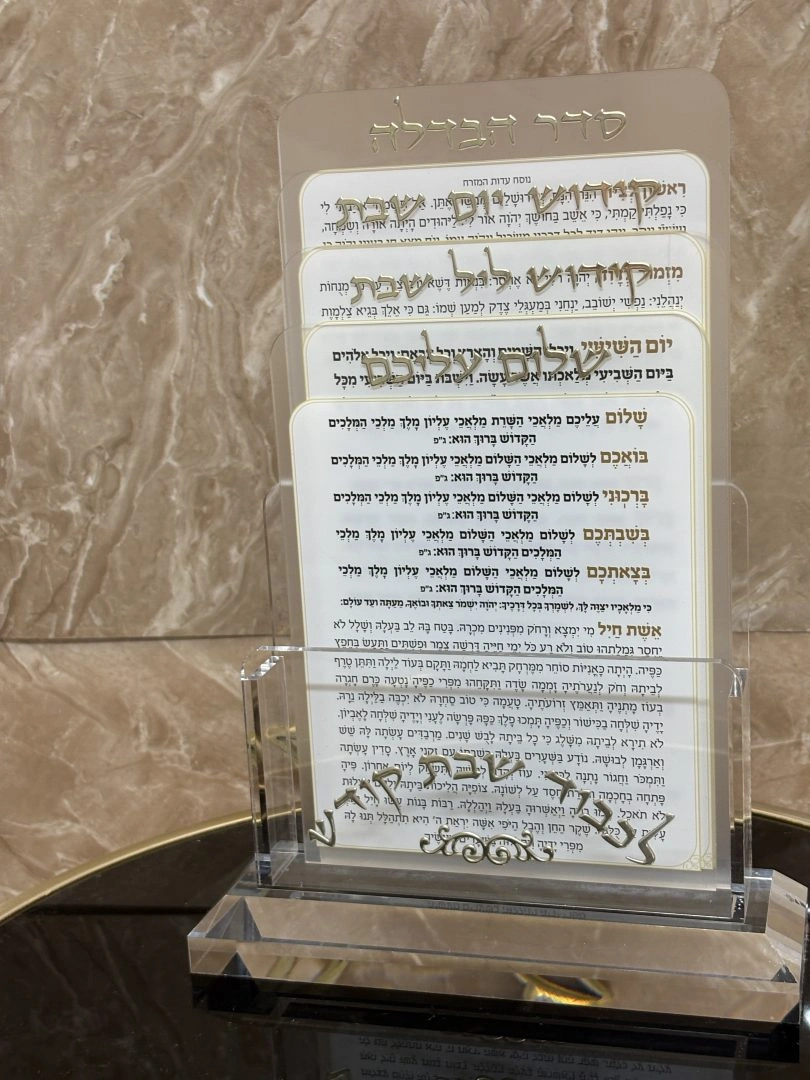 סדר הבדלה
נוסח עדות המזרח
קידוש יום שבת
כִּי נָפַלְתִּי קַמְתִּי, כִּי אֵשֵׁב בַּחוֹשֶׁךְ יְהֹוָה אוֹר לִי. לַיְּהוּדִים הָיְתָה אוֹרָה וְשִׂמְחָה,
קידוש ליל שבת
יְנַהֲלֵנִי: נַפְשִׁי יְשׁוֹבֵב, יַנְחֵנִי בְּמַעְגְּלֵי צֶדֶק לְמַעַן שְׁמוֹ: גַּם כִּי אֵלֵךְ בְּגֵיא צַלְמָוֶת
יוֹם הַשִּׁישִּׁי
שלום עליכם
בַּיּוֹם הַשְּׁבִיעִי מְלַאכְתּוֹ אֲשֶׁר עָשָׂה. וַיִּשְׁבֹּת בַּיּוֹם הַשְּׁבִיעִי מִכָּל
שָׁלוֹם עֲלֵיכֶם מַלְאֲכֵי הַשָּׁרֵת מַלְאֲכֵי עֶלְיוֹן מֶלֶךְ מַלְכֵי הַמְּלָכִים
הַקָּדוֹשׁ בָּרוּךְ הוּא: ג"פ
בּוֹאֲכֶם לְשָׁלוֹם מַלְאֲכֵי הַשָּׁלוֹם מַלְאֲכֵי עֶלְיוֹן מֶלֶךְ מַלְכֵי הַמְּלָכִים
הַקָּדוֹשׁ בָּרוּךְ הוּא: ג"פ
בָּרְכוּנִי לְשָׁלוֹם מַלְאֲכֵי הַשָּׁלוֹם מַלְאֲכֵי עֶלְיוֹן מֶלֶךְ מַלְכֵי הַמְּלָכִים
הַקָּדוֹשׁ בָּרוּךְ הוּא: ג"פ
בְּשִׁבְתְּכֶם לְשָׁלוֹם מַלְאֲכֵי הַשָּׁלוֹם מַלְאֲכֵי עֶלְיוֹן מֶלֶךְ מַלְכֵי
הַמְּלָכִים הַקָּדוֹשׁ בָּרוּךְ הוּא: ג"פ
בְּצֵאתְכֶם לְשָׁלוֹם מַלְאֲכֵי הַשָּׁלוֹם מַלְאֲכֵי עֶלְיוֹן מֶלֶךְ מַלְכֵי
הַמְּלָכִים הַקָּדוֹשׁ בָּרוּךְ הוּא: ג"פ
כִּי מַלְאָכָיו יְצַוֶּה לָּךְ, לִשְׁמָרְךָ בְּכָל דְּרָכֶיךָ: יְהֹוָה יִשְׁמֹר צֵאתְךָ וּבוֹאֶךָ, מֵעַתָּה וְעַד עוֹלָם:
אֵשֶׁת חַיִל מִי יִמְצָא וְרָחֹק מִפְּנִינִים מִכְרָהּ. בָּטַח בָּהּ לֵב בַּעְלָהּ וְשָׁלָל לֹא
יֶחְסָר. גְּמָלַתְהוּ טוֹב וְלֹא רָע כֹּל יְמֵי חַיֶּיהָ. דָּרְשָׁה צֶמֶר וּפִשְׁתִּים וַתַּעַשׂ בְּחֵפֶץ
כַּפֶּיהָ. הָיְתָה כָּאֳנִיּוֹת סוֹחֵר מִמֶּרְחָק תָּבִיא לַחְמָהּ. וַתָּקָם בְּעוֹד לַיְלָה וַתִּתֵּן טֶרֶף
לְבֵיתָהּ וְחֹק לְנַעֲרֹתֶיהָ. זָמְמָה שָׂדֶה וַתִּקָּחֵהוּ מִפְּרִי כַפֶּיהָ נָטְעָה כָּרֶם. חָגְרָה
בְעוֹז מָתְנֶיהָ וַתְּאַמֵּץ זְרוֹעֹתֶיהָ. טָעֲמָה כִּי טוֹב סַחְרָהּ לֹא יִכְבֶּה בַלַּיְלָה נֵרָהּ.
יָדֶיהָ שִׁלְּחָה בַכִּישׁוֹר וְכַפֶּיהָ תָּמְכוּ פָלֶךְ. כַּפָּהּ פָּרְשָׂה לֶעָנִי וְיָדֶיהָ שִׁלְּחָה לָאֶבְיוֹן.
לֹא תִירָא לְבֵיתָהּ מִשָּׁלֶג כִּי כָל בֵּיתָהּ לָבֻשׁ שָׁנִים. מַרְבַדִּים עָשְׂתָה לָּהּ שֵׁשׁ
וְאַרְגָּמָן לְבוּשָׁהּ. נוֹדָע בַּשְּׁעָרִים בַּעְלָהּ בְּשִׁבְתּוֹ עִם זִקְנֵי אָרֶץ. סָדִין עָשְׂתָה
וַתִּמְכֹּר וַחֲגוֹר נָתְנָה לַכְּנַעֲנִי. עוֹז וְהָדָר לְבוּשָׁהּ וַתִּשְׂחַק לְיוֹם אַחֲרוֹן. פִּיהָ
פָּתְחָה בְחָכְמָה וְתוֹרַת חֶסֶד עַל לְשׁוֹנָהּ. צוֹפִיָּה הֲלִיכוֹת בֵּיתָהּ וְלֶחֶם עַצְלוּת
לכבוד שבת קודש